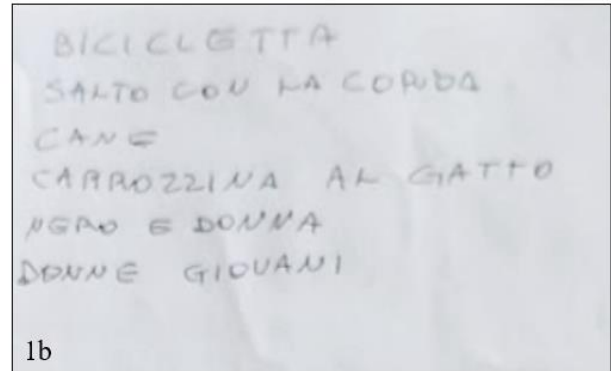 BICICLETTA
SALTO CON LA CORDA
CANE
CARROZZINA AL GATTO
NERO E DONNA
DONNE GIOVANI
1b